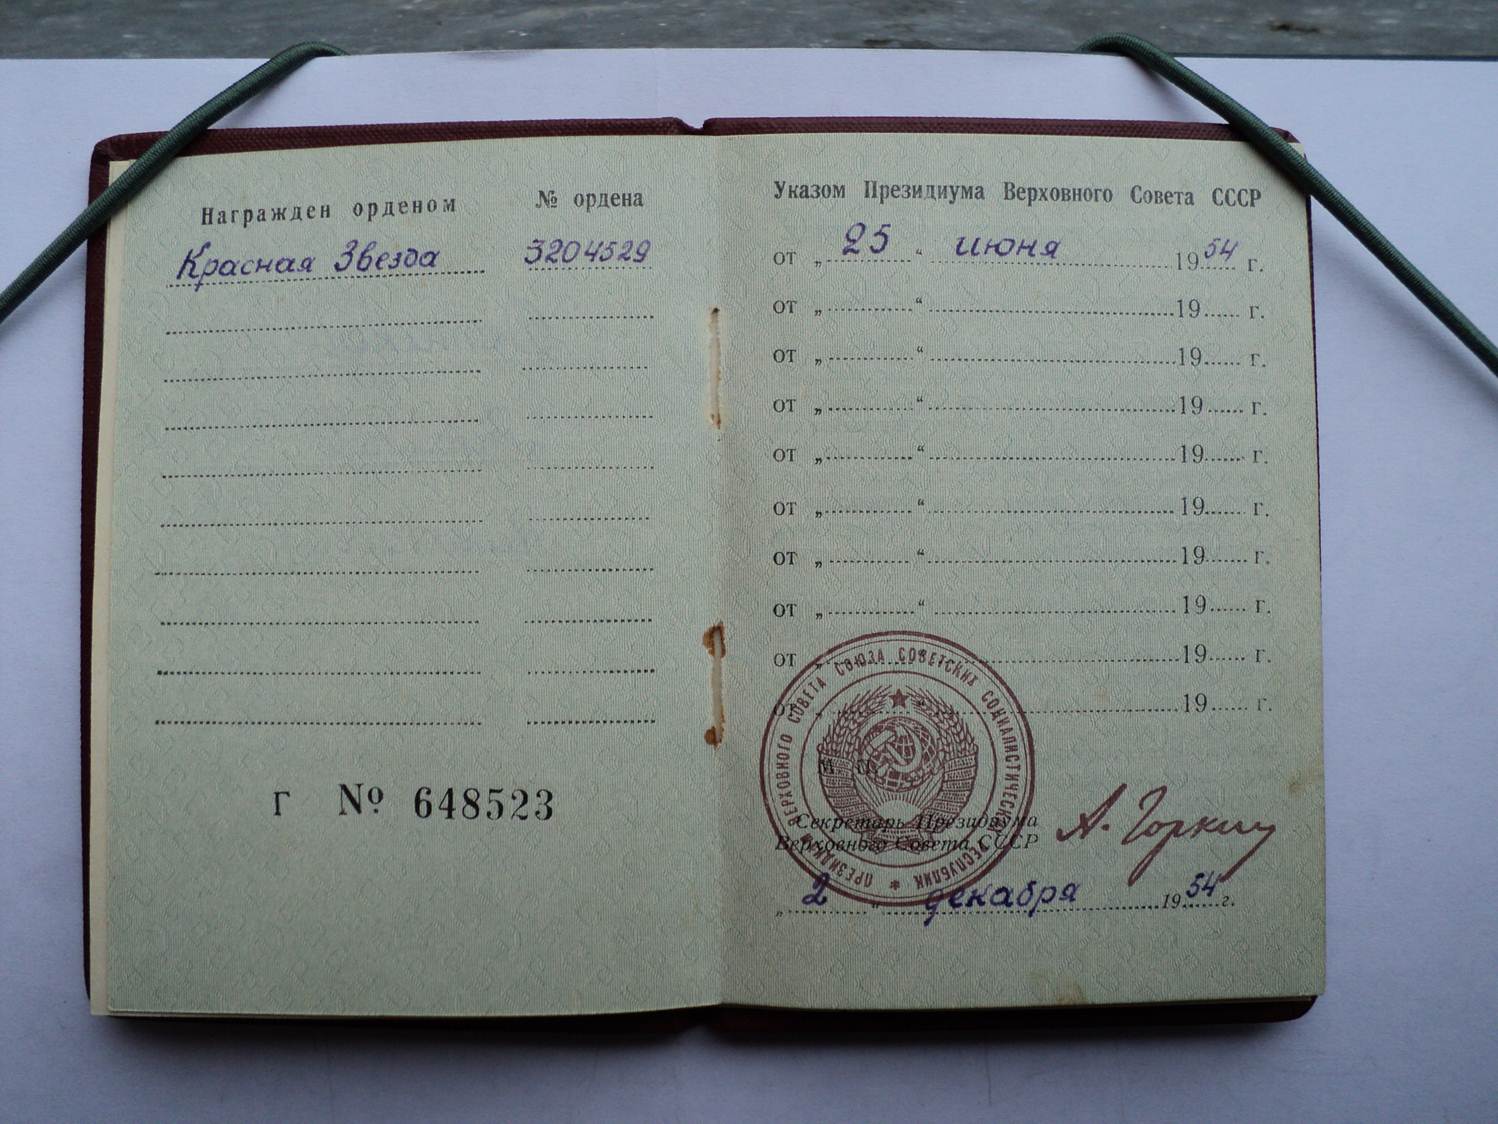 Награжден орденом № ордена
Красная Звезда 3204529
Г № 648523
Указом Президиума Верховного Совета СССР
от „ 25 “ июня 1954 г.
от „ “ 19 г.
от „ “ 19 г.
от „ “ 19 г.
от „ “ 19 г.
от „ “ 19 г.
от „ “ 19 г.
от „ “ 19 г.
от „ “ 19 г.
от „ “ 19 г.
М. П.
ПРЕЗИДИУМ ВЕРХОВНОГО СОВЕТА СОЮЗА СОВЕТСКИХ СОЦИАЛИСТИЧЕСКИХ РЕСПУБЛИК
Секретарь Президиума
Верховного Совета СССР А. Горкин
„ 2 “ декабря 1954 г.